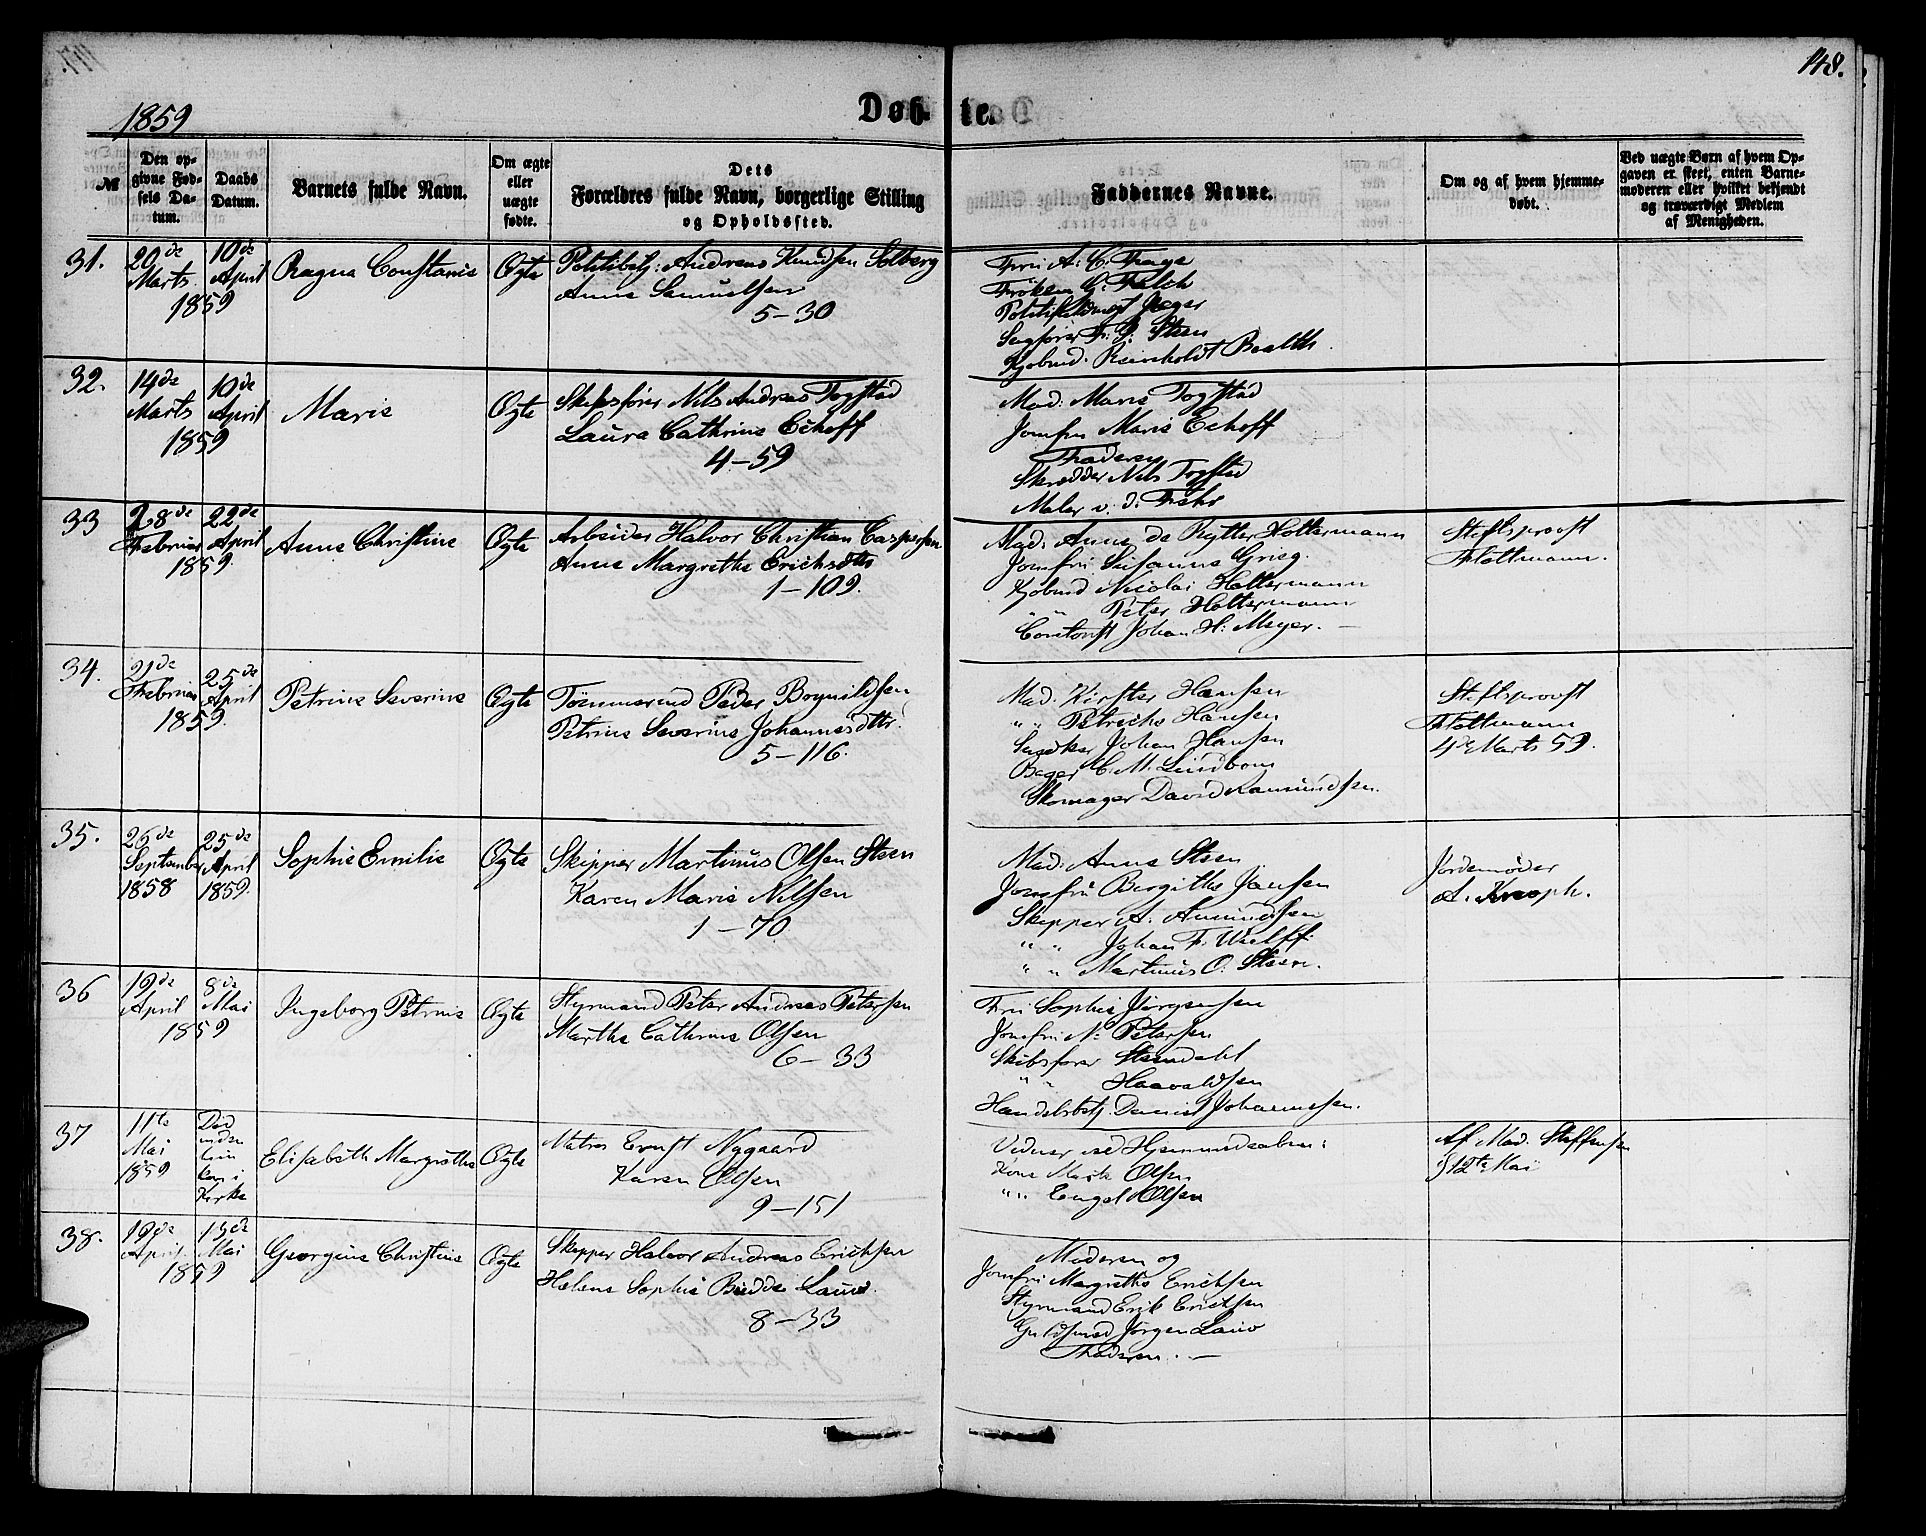 148.
1859
Døbte.
№
Den opgivne Fødsels Datum.
Daabs Datum.
Barnets fulde Navn.
Om ægte eller uægte fødte.
Dets Forældres fulde Navn, borgerlige Stilling og Opholdssted.
Faddernes Navne.
Om og af hvem hjemmedøbt.
Ved uægte Børn af hvem Opgaven er skeet, enten Barnemoderen eller hvilket bekjendt og troværdigt Medlem af Menigheden.
31.
20de Marts
10de April
1859
Ragna Constanse
Ægte
Politibetj: Andreas Knudsen Solberg
Anne Samuelsen
5-30
Fru A. C. Frage
Frøken G. Falch
Politifuldmægt Jæger
Sagfører F. G. Steen
Kjøbmd. Reinholdt
32.
14de Marts
10de April
1859
Marie
Ægte
Skibsfører Nils Andreas Fogstad
Laura Cathrine Echoff
4-59
Mad. Marie Fogstad
Jomfru Marie Echoff
Faderen
Skredder Nils Fogstad
Maler v. d. Fehr
33
28de Februar
22de April
1859.
Anne Christine
Ægte
Arbeider Halvor Christian Caspersen
Anne Margrethe Erichsdttr
1-109.
Mad. Anne de Rytter Holtermann
Jomfru Susanne Grieg.
Kjøbmd Nicolai Holtermann
" " Peter Holtermann
Contorist Johan H. Meyer. —
Stiftsprovst
Flottmann.
34.
21de Februar
25de April
1859.
Petrine Severine
Ægte
Tømmermd Peder Boynildsen
Petrine Severine Johannesdttr.
5-116.
Mad. Kirster Hansen
" " Petriche Hansen
Johan Hansen
Bager C. M. Lindbom
Skomager David Ramundsen.
Stiftsprovst
Flottmann
4de Marts 59.
35.
26de September 1858
25de April 1859.
Sophie Emilie
Ægte
Skipper Martinus Olsen Steen
Karen Marie Nilsen
1-70
Mad. Anne Steen
Jomfru Bergithe Jansen
Skipper A. Amundsen
" " Johan F. Wielff.
" " Martinus O. Steen.
Jordemoder
A. Knoph.
36
19de April
8de Mai
1859
Ingeborg Petrine
Ægte
Styrmand Peter Andreas Petersen
Marthe Cathrine Olsen
6-33
Fru Sophie Jørgensen
Jomfru N. Petersen
Skibsfører Steendahl
" " Haavaldsen
Handelsbetj. Daniel Johannesen.
37
11te Mai 1859
Død inden kom i Kirke
Elisabeth Margrethe
Ægte
Matros Ernst Nygaard
Karen Olsen
9-151
Vidner ved Hjemmedaaben:
Kone Marthe Olsen
" " Engel Olsen
Af Mad. Steffensen
d 12te Mai
38.
19de April
13de Mai
1859
Georgine Christine
Ægte
Skipper Halvor Andreas Erichsen
Helene Sophie Budde Laue.
8-33
Moderen og
Jomfru Margrethe Erichsen
Styrmand Erik Erichsen
Guldsmed Jørgen Laue
Faderen. —